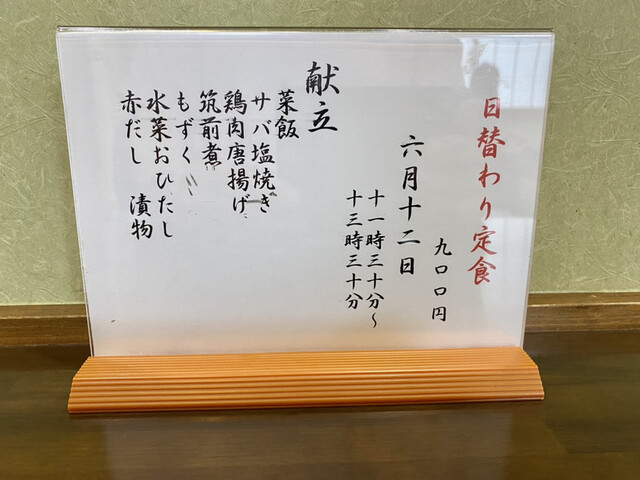 日替わり定食
九〇〇円
六月十二日
十一時三十分~
十三時三十分
献立
菜飯
サバ塩焼き
鶏肉唐揚げ
筑前煮
もずく
水菜おひたし
赤だし 漬物